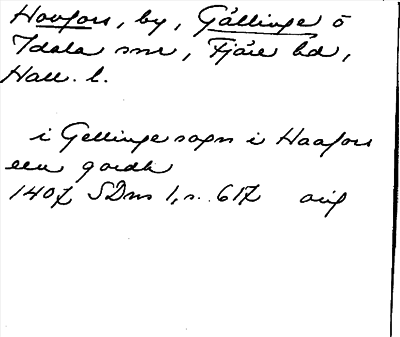 Haafors, by, Gällinge o
Idala snr, Fjäre hd,
Hall. l.
i Gellinge sogn i Haafors
een gordh
1407 SDns 1, s. 617 orig